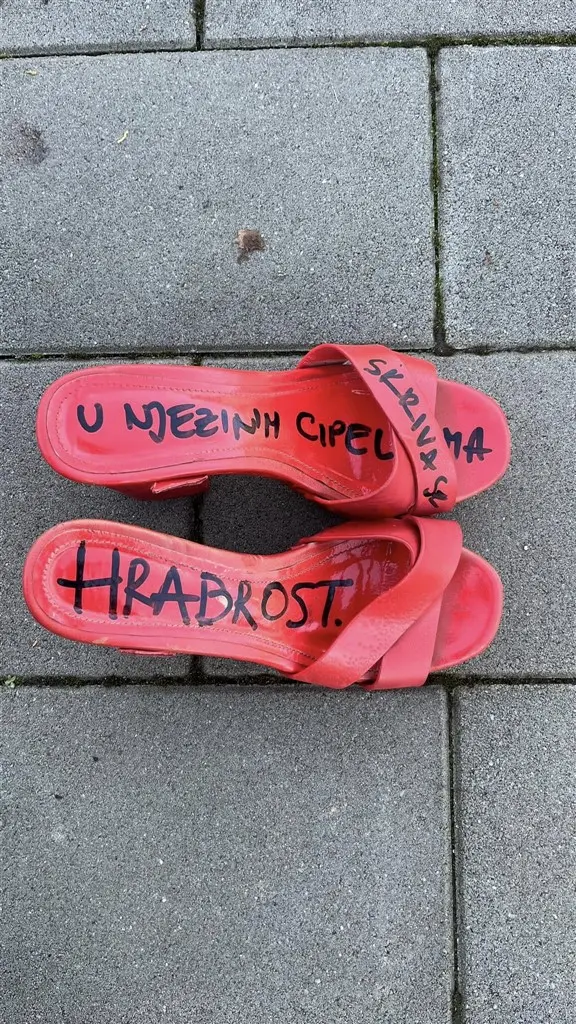 U NJEZINIM CIPELAMA
SKRIVA SE
HRABROST.